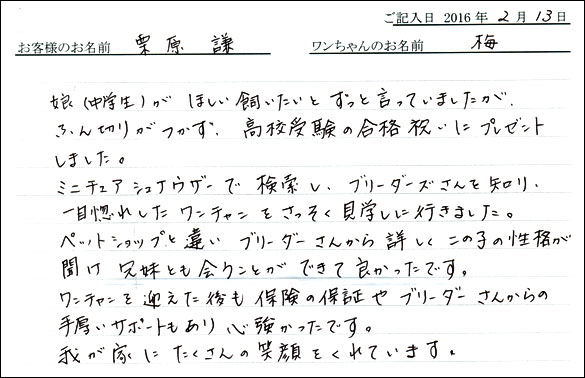 ご記入日 2016年 2月 13日
お客様のお名前 栗原 謙 ワンちゃんのお名前 梅
娘(中学生)が ほしい 飼いたいと ずっと言っていましたが、
ふん切りがつかず、高校受験の合格祝いにプレゼント
しました。
ミニチュアシュナウザーで 検索し、ブリーダーズさんを知り、
一目惚れした ワンチャン を さっそく見学しに行きました。
ペットショップと違い ブリーダー さんから 詳しく この子の性格が
聞け 兄妹とも会うことが できて良かったです。
ワンチャンを 迎えた後も 保険の保証や ブリーダー さんからの
手厚いサポートもあり 心強かったです。
我が家に たくさんの笑顔をくれています。